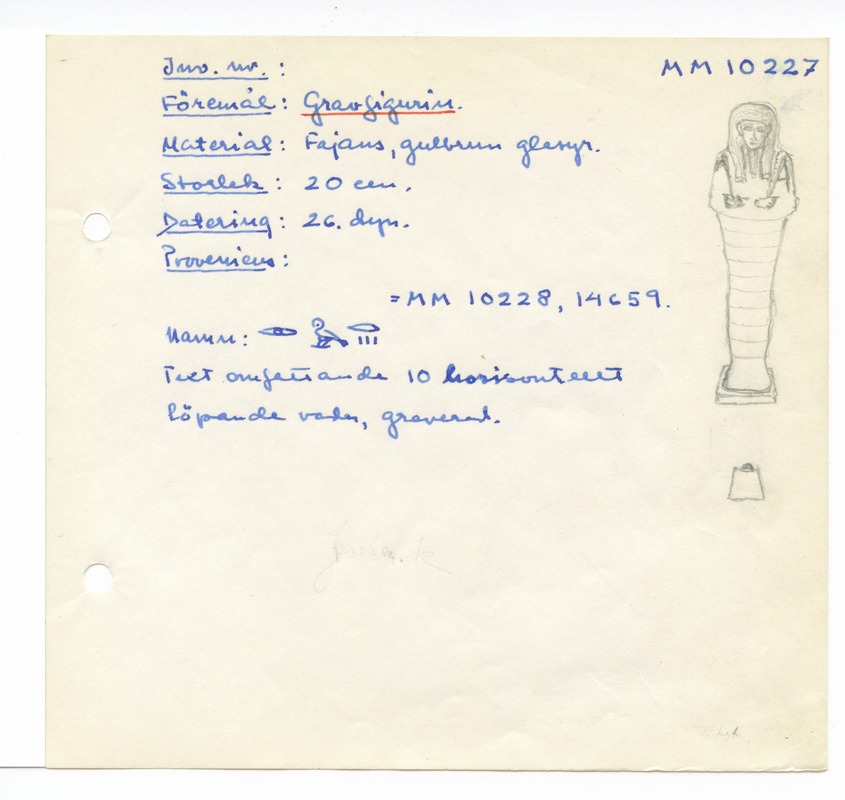 Inv. nr. :
MM 10227
Föremål : Gravfigurin.
Material : Fajans, gulbrun glasyr.
Storlek : 20 cm.
Datering : 26. dyn.
Proveniens :
= MM 10228, 14659.
Namn :
Text omfattande 10 horisontellt
löpande rader, graverad.